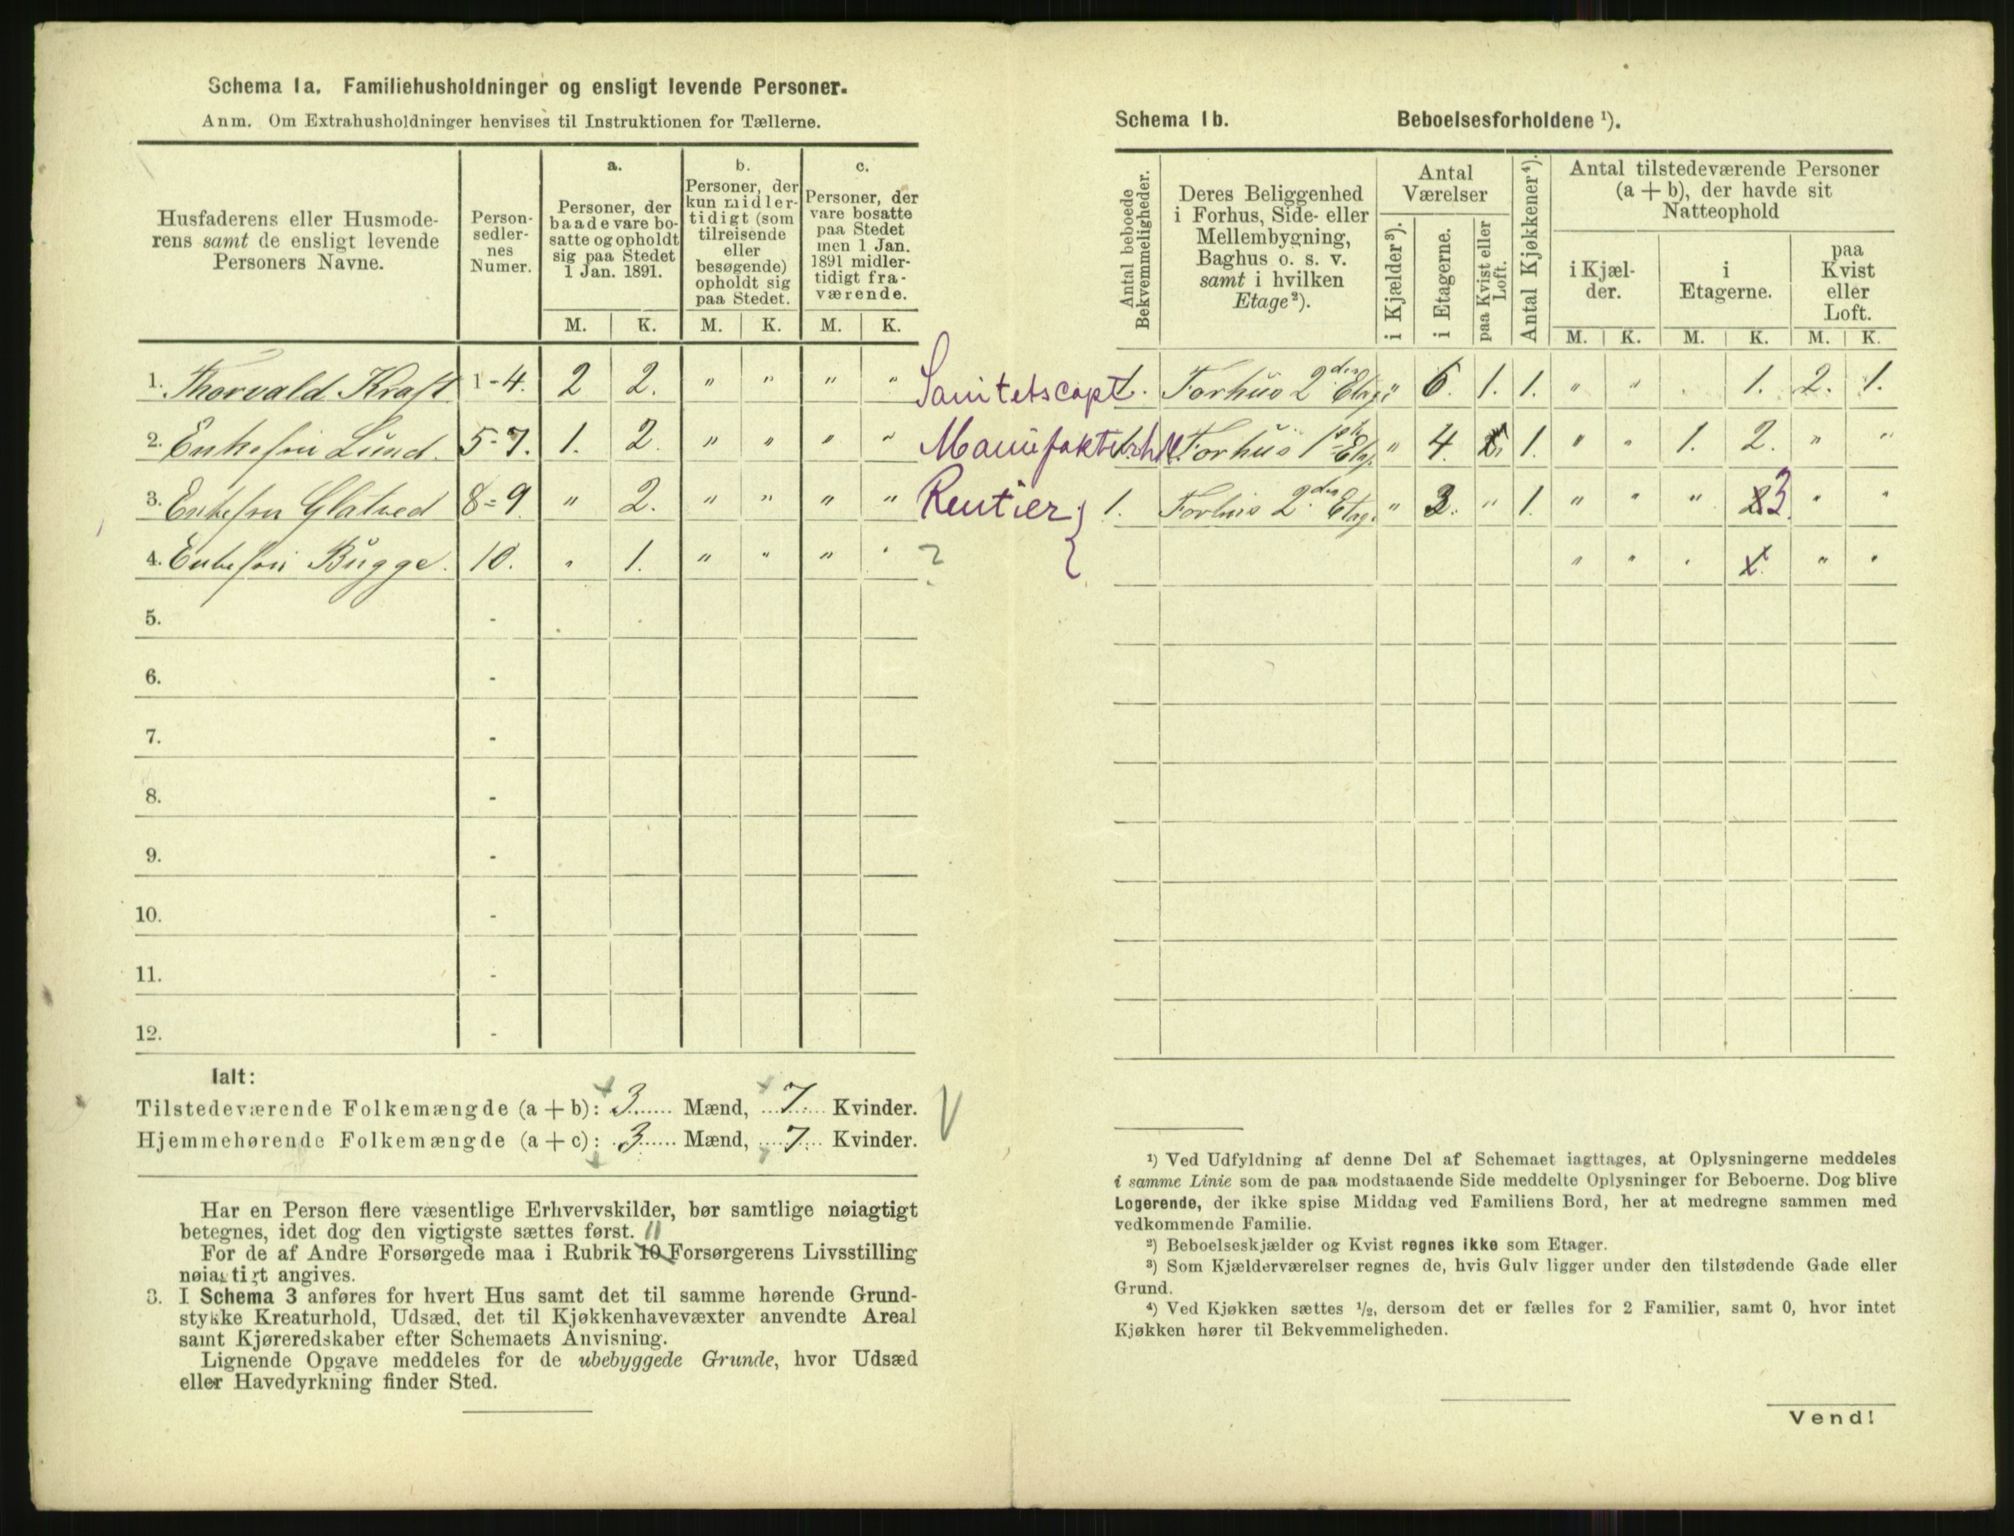 Schema 1a. Familiehusholdninger og ensligt levende Personer.
Anm. Om Extrahusholdninger henvises til Instruktionen for Tællerne.
Husfaderens eller Husmode-
rens samt de ensligt levende
Personers Navne.
Person-
sedler-
nes
Numer.
a.
Personer, der
baade vare bo-
satte og opholdt
sig paa Stedet
1 Jan. 1891.
b.
Personer, der
kun midler-
tidigt (som
tilreisende
eller
besøgende)
opholdt sig
paa Stedet.
c.
Personer, der
vare bosatte
paa Stedet
men 1 Jan.
1891 midler-
tidigt fra-
værende.
M. K. M. K. M. K.
1. Thorvald Kraft 1-4. 2 2. " " " " Sanitetscapt.
2. Enkefru Lund. 5-7. 1. 2. " " " "
3. Enkefru Glatved 8=9. " 2. " " " " Rentier
4. Enkefru Bugge. 10. " 1. " " " " ?
5. -
6. -
7. -
8. -
9. -
10. -
11. -
12. -
Ialt:
Tilstedeværende Folkemængde (a + b): 3 Mænd, 7 Kvinder.
Hjemmehørende Folkemængde (a + c): 3 Mænd, 7 Kvinder.
Har en Person flere væsentlige Erhvervskilder, bør samtlige nøiagtigt
betegnes, idet dog den vigtigste sættes først. 11
For de af Andre Forsørgede maa i Rubrik 10 Forsørgerens Livsstilling
nøiagtigt angives.
3. I Schema 3 anføres for hvert Hus samt det til samme hørende Grund-
stykke Kreaturhold, Udsæd, det til Kjøkkenhavevæxter anvendte Areal
samt Kjøreredskaber efter Schemaets Anvisning.
Lignende Opgave meddeles for de ubebyggede Grunde, hvor Udsæd
eller Havedyrkning finder Sted.
Schema 1b. Beboelsesforholdene ¹).
Antal beboede
Bekvemmeligheder.
Deres Beliggenhed
i Forhus, Side- eller
Mellembygning,
Baghus o. s. v.
samt i hvilken
Etage²).
Antal
Værelser
i Kjælder³).
i Etagerne.
paa Kvist eller
Loft.
Antal Kjøkkener⁴).
Antal tilstedeværende Personer
(a + b), der havde sit
Natteophold
i Kjæl-
der.
i
Etagerne.
paa
Kvist
eller
Loft.
M. K. M. K. M. K.
1. Forhus 2den Etag. " 6. 1. 1. " " . 1. 2. 1.
1. Forhus 1ste Etag. " 4. 1. " " 1. 2. " "
1. Forhus 2den Etag. " 3. " 1. " " " 2 3. " "
" " " 1. " "
¹) Ved Udfyldning af denne Del af Schemaet iagttages, at Oplysningerne meddeles
i samme Linie som de paa modstaaende Side meddelte Oplysninger for Beboerne. Dog blive
Logerende, der ikke spise Middag ved Familiens Bord, her at medregne sammen med
vedkommende Familie.
²) Beboelseskjælder og Kvist regnes ikke som Etager.
³) Som Kjælderværelser regnes de, hvis Gulv ligger under den tilstødende Gade eller
Grund.
⁴) Ved Kjøkken sættes ½, dersom det er fælles for 2 Familier, samt 0, hvor intet
Kjøkken hører til Bekvemmeligheden.
Vend!